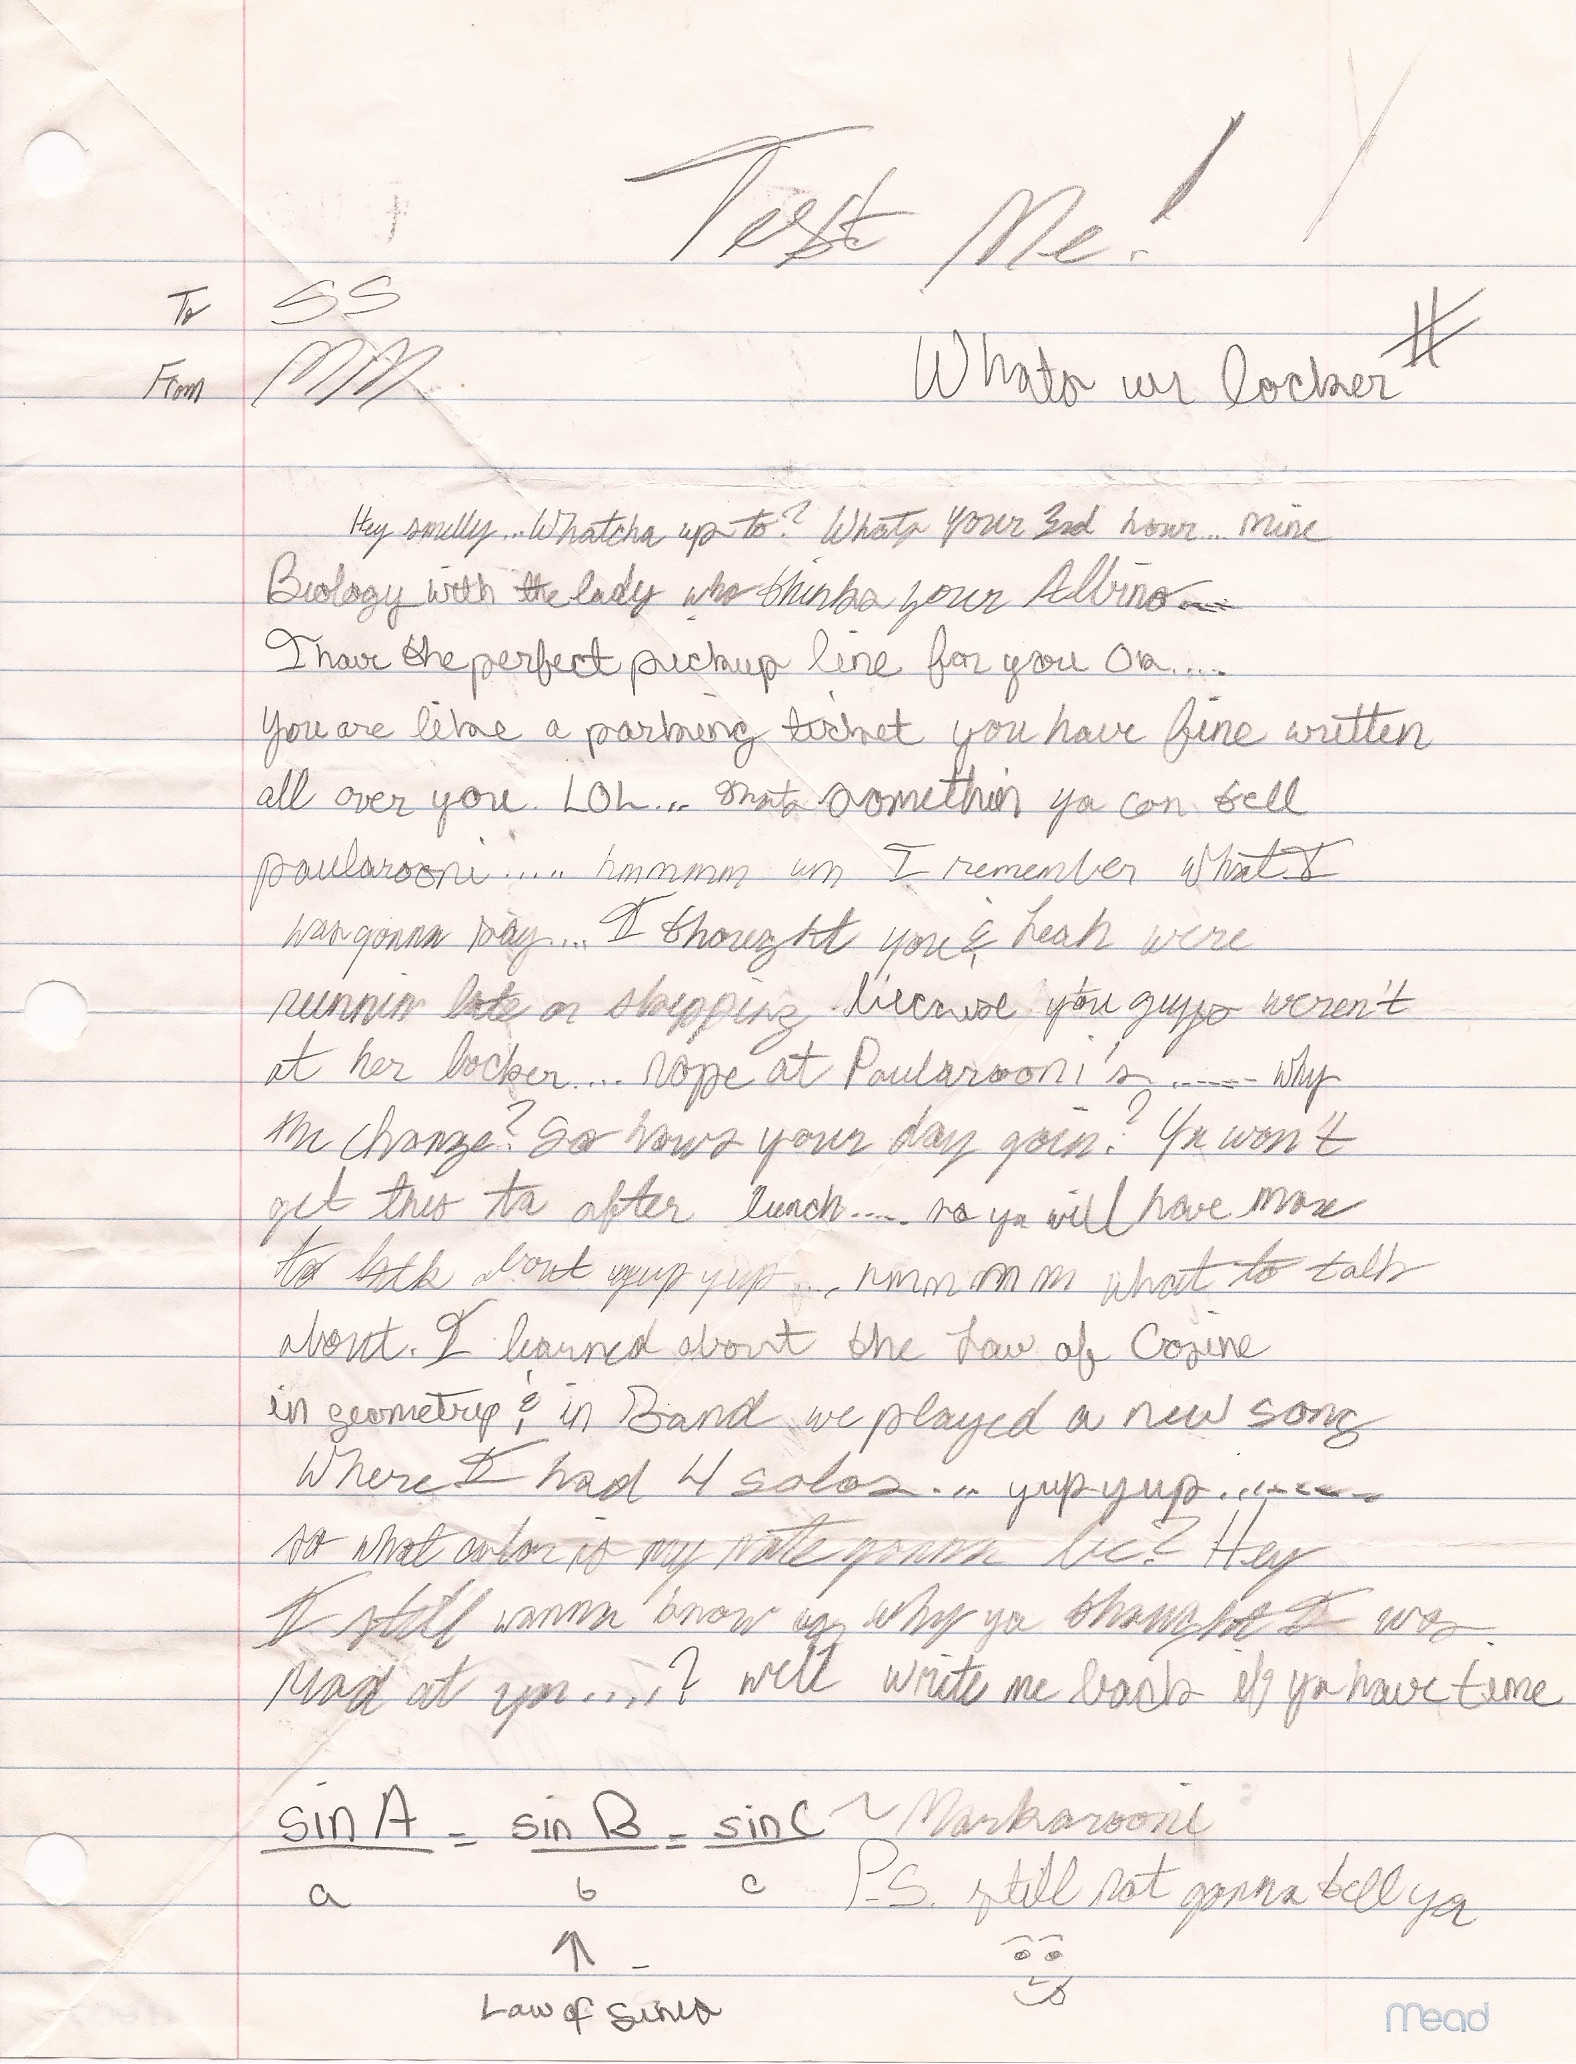 Test Me!
To SS
From MM
Whats ur locker #
Hey smelly... Whatcha up to? Whats your 3rd hour... mine
Biology with the lady who thinks your Albino....
I have the perfect pickup line for you Ok.....
You are like a parking ticket you have fine written
all over you. LOL... thats somethin ya can tell
paularooni..... hmmmm um I remember what I
was gonna say.... I thought you & Leah were
runnin late or skipping because you guys weren't
at her locker.... nope at Paularooni's ...... why
the change? So hows your day goin? Ya won't
get this ta after lunch..... so ya will have more
to talk about yup yup.... hmmmmm what to talk
about. I learned about the Law of Cosine
in geometry & in Band we played a new song
Where I had 4 solos... yup yup........
so what color is my note gonna be? Hey
I still wanna know why ya thought I was
mad at ya.....? well write me back if ya have time
sin A = sin B = sin C ~ Markarooni
a b c P.S. still not gonna tell ya
↑
Law of Sines
Mead